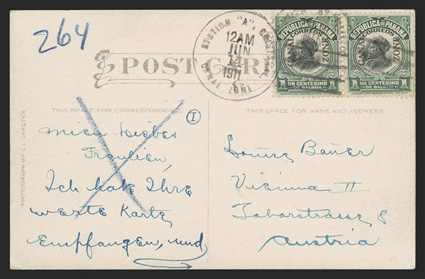 264
STATION "A"
12AM
JUN
14
1911
REPÚBLICA DE PANAMÁ
CANAL ZONE
UN CENTESIMO
DE BALBOA
1
REPÚBLICA DE PANAMÁ
CANAL ZONE
UN CENTESIMO
DE BALBOA
1
POST CARD
THIS SPACE FOR CORRESPONDENCE
THIS SPACE FOR NAME AND ADDRESS
PHOTOGRAPH BY C.L. CHESTER
1
Mein liebes
Fraulien,
Ich hab Ihre
werte Karte
Empfangen, und
Louise Bauer
Vienna II
Taborstrasse 8
Austria